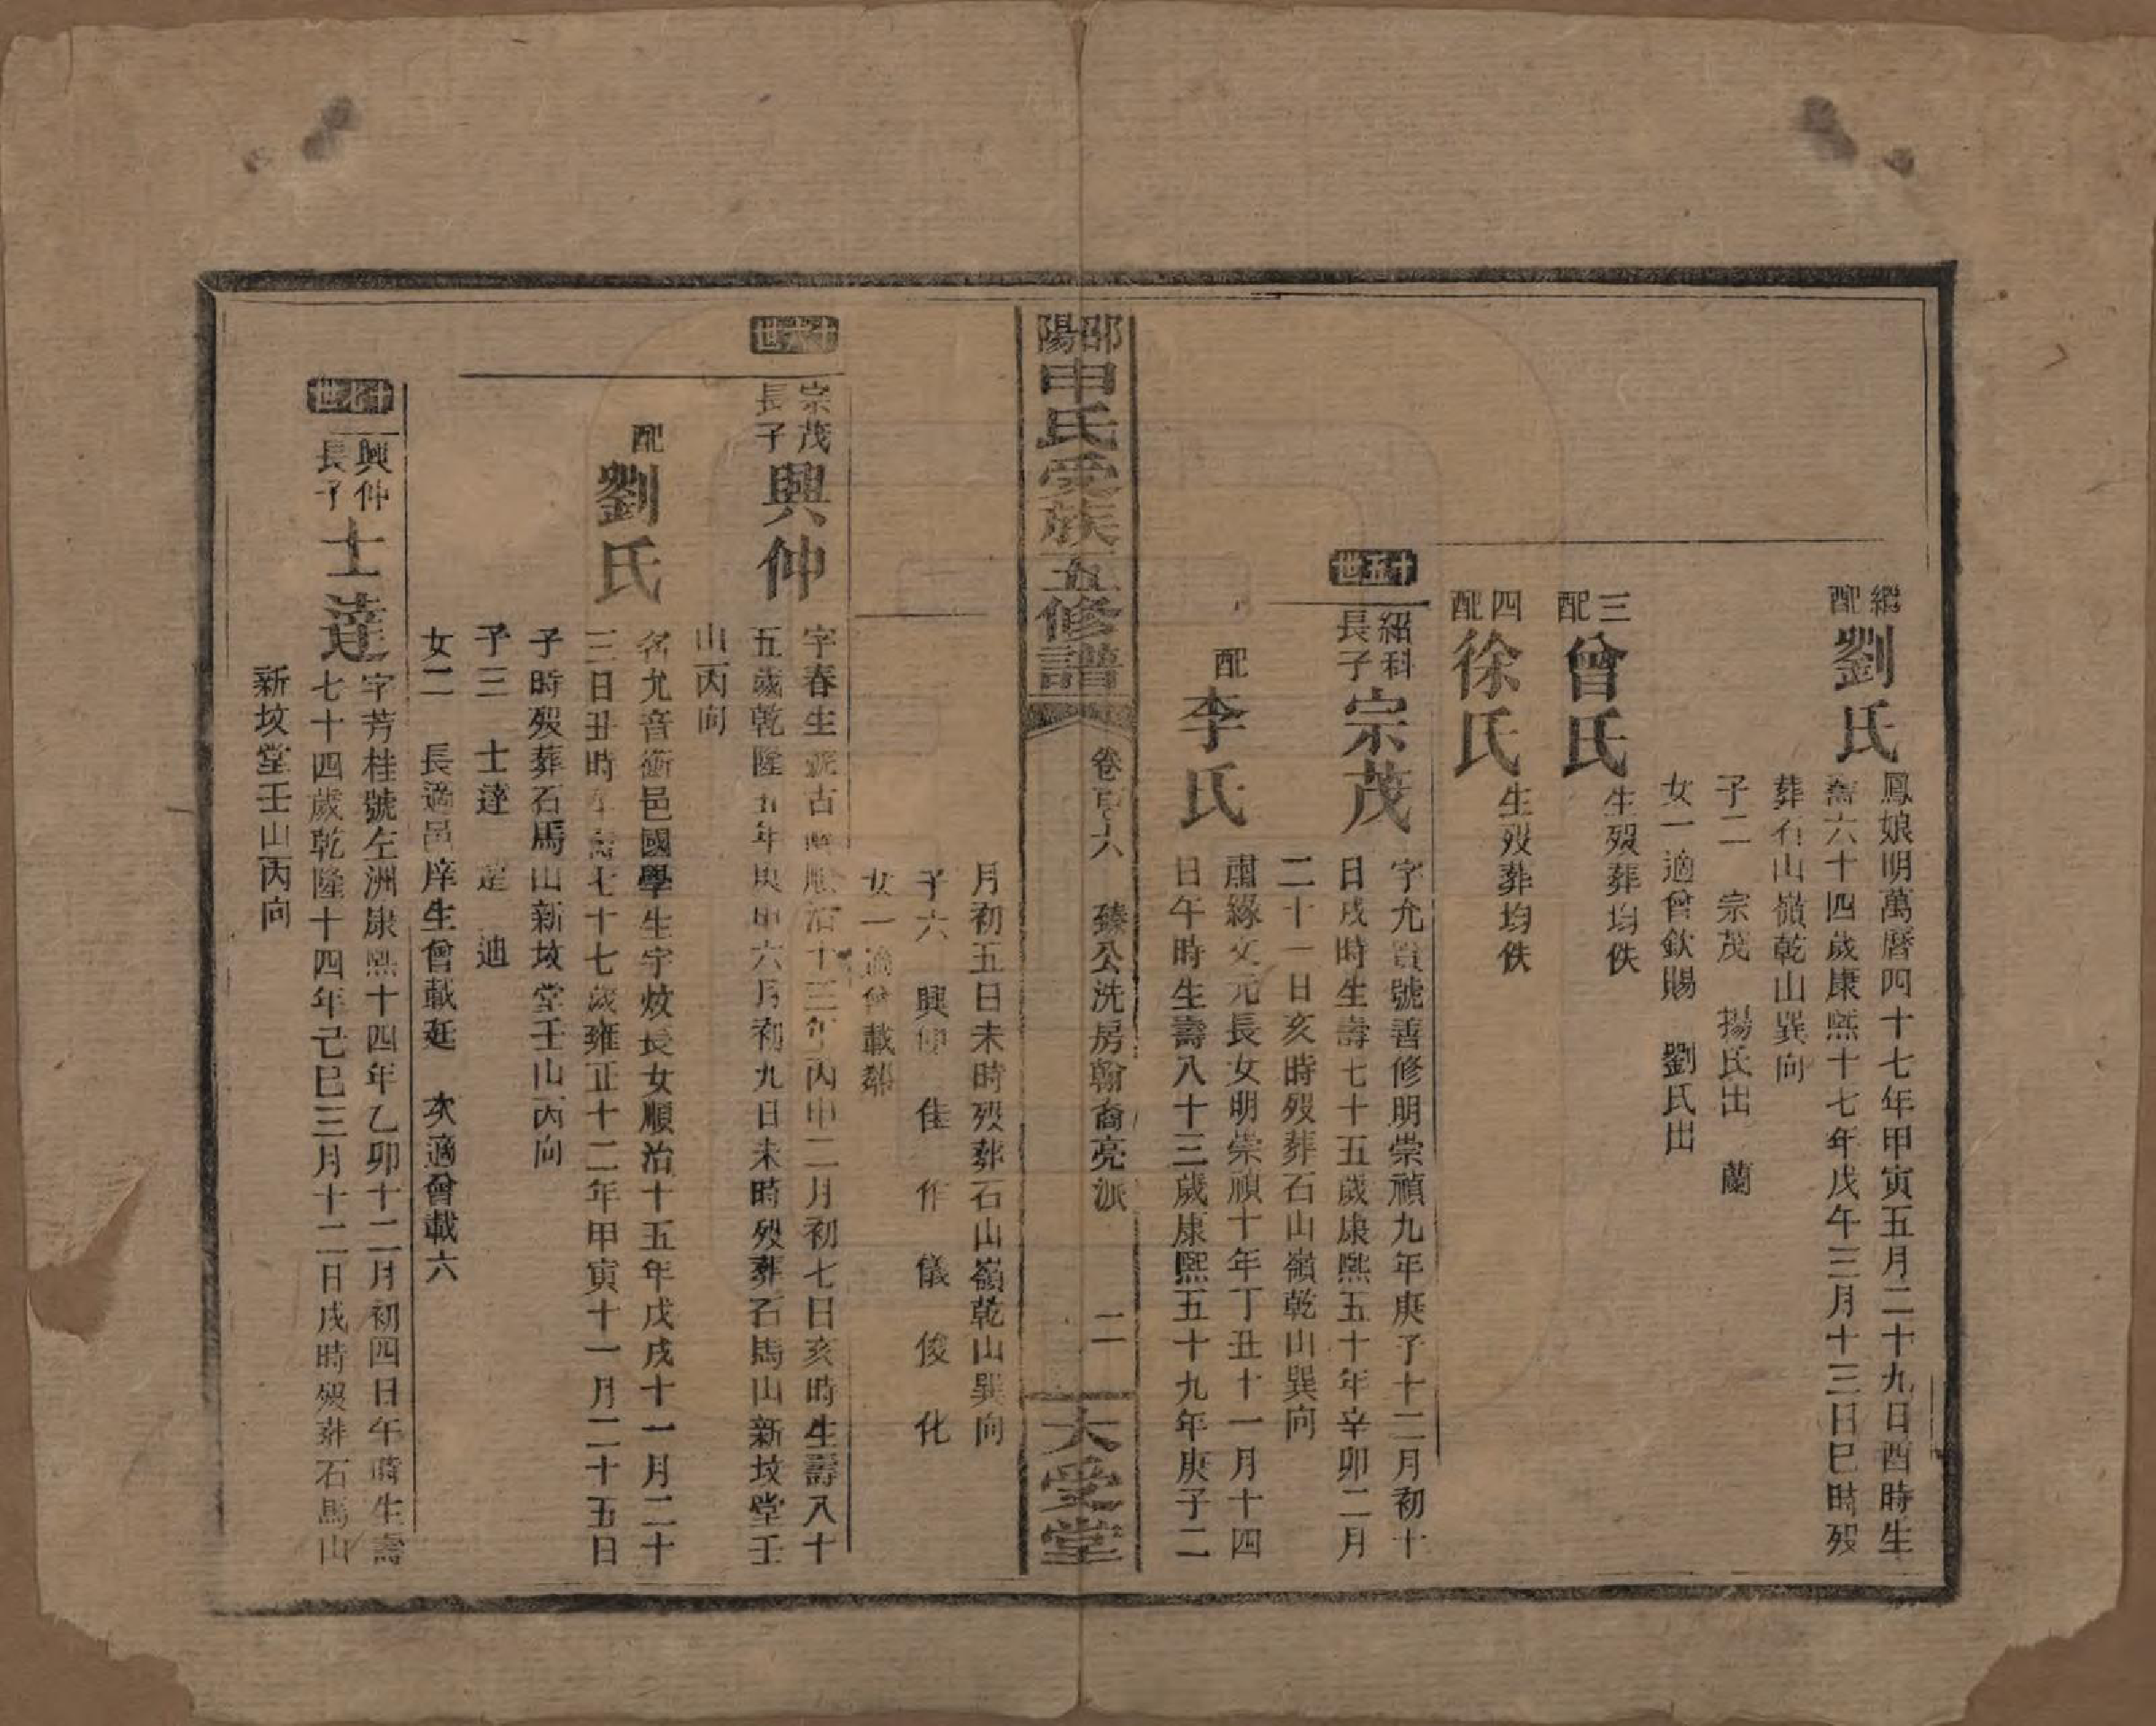 繼配劉氏
鳳娘明萬曆四十七年甲寅五月二十九日酉時生
壽六十四歲康熙十七年戊午三月十三日巳時歿
葬石山嶺乾山巽向
子二 宗茂 揚氏出 蘭
女一適曾欽賜 劉氏出
三配曾氏
生歿葬均佚
四配徐氏
生歿葬均佚
十五世
紹科長子宗茂
字允號善修明崇禎九年庚子十二月初十
日戌時生壽七十五歲康熙五十年辛卯二月
二十一日亥時歿葬石山嶺乾山巽向
配李氏
肅緣文元長女明崇禎十年丁丑十一月十四
日午時生壽八十三歲康熙五十九年庚子二
邵陽申氏受族五修譜
卷六 臻公洗房翰裔亮派 二
大受堂
月初五日未時歿葬石山嶺乾山巽向
子六 興仲 佳 作 儀 俊 化
女一適曾載
十六世
宗茂長子興仲
字春生號古順治十三年丙申二月初七日亥時生壽八十
五歲乾隆五年庚申六月初九日未時歿葬石馬山新坟堂壬
山丙向
配劉氏
名允音衡邑國學生字炆長女順治十五年戊戌十一月二十
三日丑時生壽七十七歲雍正十二年甲寅十一月二十五日
子時歿葬石馬山新坟堂壬山丙向
子三 士達 迪
女二 長適邑庠生曾載廷 次適曾載六
十七世
興仲長子士達
字芳桂號左洲康熙十四年乙卯十二月初四日午時生壽
七十四歲乾隆十四年己巳三月十二日戌時歿葬石馬山
新坟堂壬山丙向